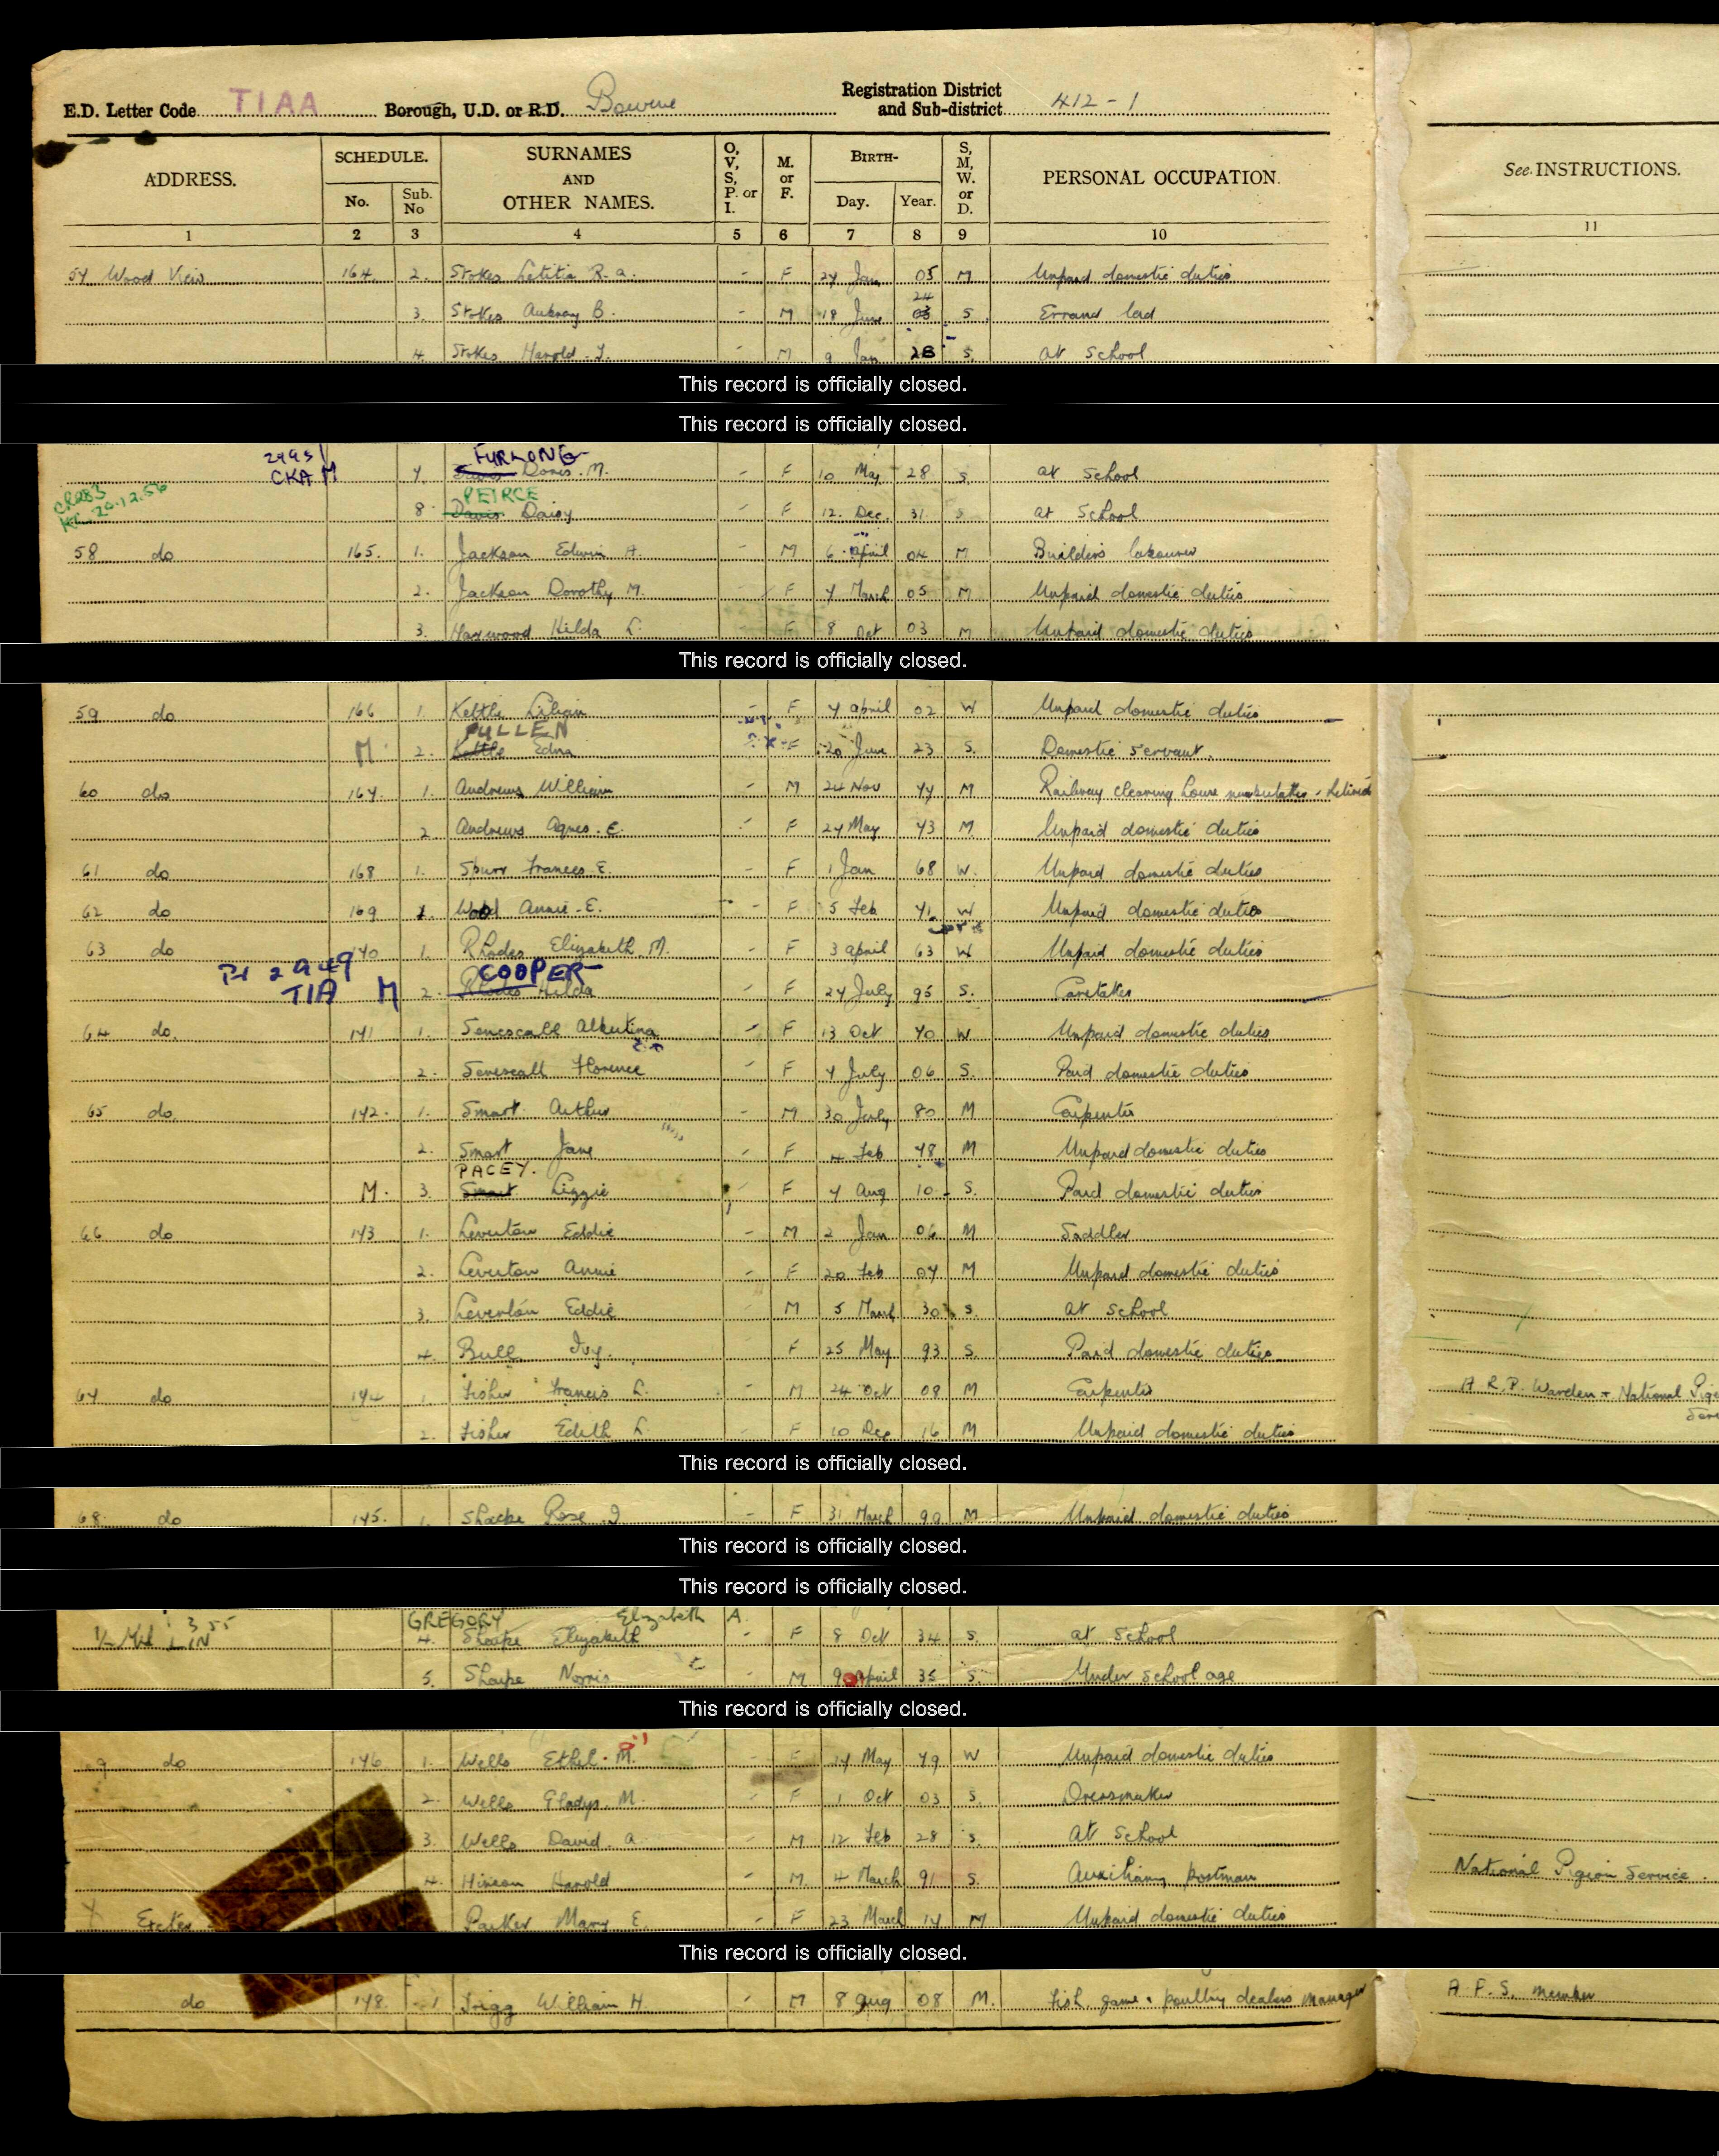 E.D. Letter Code TIAA Borough, U.D. or R.D. Bourne Registration District and Sub-district 412-1
ADDRESS. SCHEDULE. No. Sub. No SURNAMES AND OTHER NAMES. O, V, S, P. or I. M. or F. BIRTH- Day. Year. S, M, W. or D. PERSONAL OCCUPATION. See INSTRUCTIONS.
1 2 3 4 5 6 7 8 9 10 11
57 Wood View 164. 2. Stokes Letitia R. a. - F 27 Jan 05 M Unpaid domestic duties
24
3. Stokes Aubray B. - M 18 June 03 S Errand lad
4. Stokes Harold - M 9 Jan 28 S. at School
This record is officially closed.
This record is officially closed.
FURLONG
CKA M 7 Doris. M. - F 10 May 28 S. at School
PEIRCE
CR283 20.12.56
8 Davis Daisy - F 12. Dec. 31 S at School
58 do 165. 1. Jackson Edwin A. - M 6 April 04 M Builders labourer
2. Jackson Dorothy M. F 7 March 05 M Unpaid domestic duties
3. Haywood Hilda L. F 8 Oct 03 M Unpaid domestic duties
This record is officially closed.
59 do 166 1. Kettle Lilian - F 7 april 02 W Unpaid domestic duties
PULLEN
M 2. Kettle Edna F 20 June 23 S. Domestic servant.
60 do 167. 1. Andrews William - M 24 Nov 77 M Railway clearing house - Retired
2 Andrews Agnes. E. - F 27 May 73 M. Unpaid domestic duties
61 do 168 1. Spurr Frances E. - F 1 Jan 68 W. Unpaid domestic duties
62 do 169 1. Wood Annie. E. - F 5 Feb 71 W Unpaid domestic duties
63 do 170 1. Rhodes Elizabeth M. - F 3 april 63 W Unpaid domestic duties
COOPER
TIA M 2. Rhodes Hilda F 27 July 95 S. Caretaker
64 do. 171 1. Senescall Albertina - F 13 Oct 70 W Unpaid domestic duties
2. Senescall Florence - F 7 July 06 S. Paid domestic duties
65 do. 172. 1. Smart Arthur - M 30 July 80 M Carpenter
2. Smart Jane - F 4 Feb 78 M Unpaid domestic duties
PACEY.
M. 3. Smart Lizzie - F 7 Aug 10 S. Paid domestic duties
66 do 173 1. Leverton Eddie - M 2 Jan 06 M Saddler
2. Leverton Annie - F 20 Feb 07 M Unpaid domestic duties
3. Leverton Eddie M 5 March 30 S. at School
4. Bull Ivy. F 25 May 93 S. Paid domestic duties
67 do 174 1. Fisher Francis L. - M 24 Oct 09 M Carpenter A. R. P. Warden + National
2. Fisher Edith L. F 10 Dec 16 M Unpaid domestic duties
This record is officially closed.
68 do 175. 1. Sharpe Rose - F 31 March 99 M Unpaid domestic duties
This record is officially closed.
This record is officially closed.
GREGORY Elizabeth A.
4. Sharpe Elizabeth - F 8 Oct 34 S. at School
5. Sharpe Norris - M 9 april 35 S. Under school age
This record is officially closed.
9 do 176 1. Wells Ethel. M. - F 17 May 79 W Unpaid domestic duties
2. Wells Gladys. M. - F 1 Oct 03 S. Dressmaker
3. Wells David. a. - M 12 Feb 28 S. At School
4. Hinson Harold - M. 4 March 91 S. Auxiliary postman National Pigeon Service.
X Exeter Parker Mary E. - F 23 March 17 M Unpaid domestic duties
This record is officially closed.
do 178. 1 Trigg William H. - M 8 Aug 08 M. Fish, game & poultry dealers manager A. F. S. member